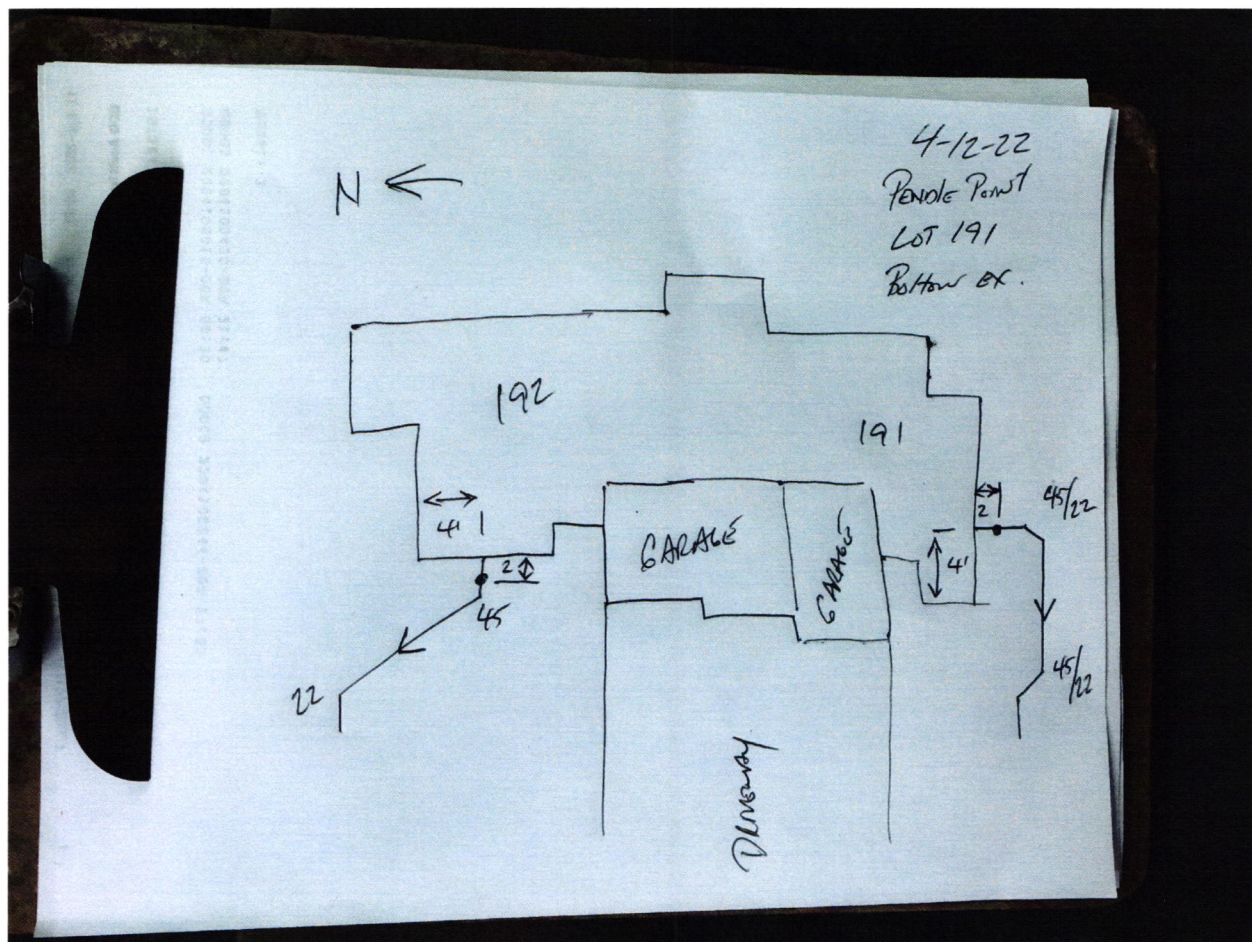 4-12-22
N
PENDLE POINT
LOT 191
Bottom EX.
192
191
4'
2
GARAGE
GARAGE
4'
2
45/22
45
22
45/22
DRIVEWAY